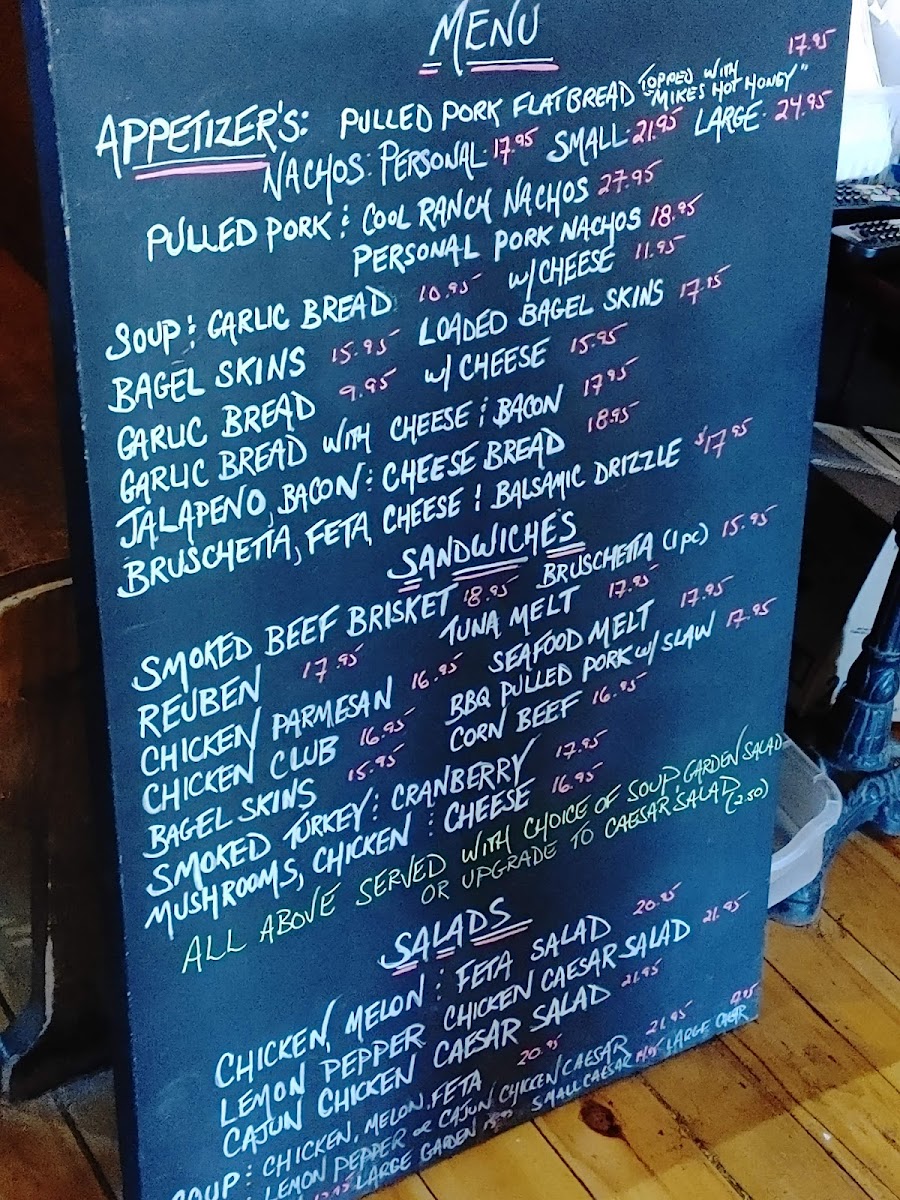 MENU
APPETIZER'S: PULLED PORK FLATBREAD TOPPED WITH "MIKES HOT HONEY" 17.95
NACHOS: PERSONAL 17.95 SMALL 21.95 LARGE 24.95
PULLED PORK & COOL RANCH NACHOS 27.95
PERSONAL PORK NACHOS 18.95
SOUP & GARLIC BREAD 10.95 W/CHEESE 11.95
BAGEL SKINS 15.95 LOADED BAGEL SKINS 17.95
GARLIC BREAD 9.95 W/ CHEESE 15.95
GARLIC BREAD WITH CHEESE & BACON 17.95
JALAPENO, BACON & CHEESE BREAD 18.95
BRUSCHETTA, FETA CHEESE & BALSAMIC DRIZZLE $17.95
SANDWICHES
SMOKED BEEF BRISKET 18.95 BRUSCHETTA (1pc) 15.95
REUBEN 17.95 TUNA MELT 17.95
CHICKEN PARMESAN 16.95 SEAFOOD MELT 17.95
CHICKEN CLUB 16.95 BBQ PULLED PORK W/ SLAW 17.95
BAGEL SKINS 15.95 CORN BEEF 16.95
SMOKED TURKEY & CRANBERRY 17.95
MUSHROOMS, CHICKEN & CHEESE 16.95
ALL ABOVE SERVED WITH CHOICE OF SOUP, GARDEN SALAD
OR UPGRADE TO CAESAR SALAD (2.50)
SALADS
CHICKEN, MELON & FETA SALAD 20.95
LEMON PEPPER CHICKEN CAESAR SALAD 21.95
CAJUN CHICKEN CAESAR SALAD 21.95
SOUP & CHICKEN, MELON, FETA 20.95
LEMON PEPPER OR CAJUN CHICKEN CAESAR 21.95
LARGE GARDEN SMALL CAESAR LARGE CAESAR